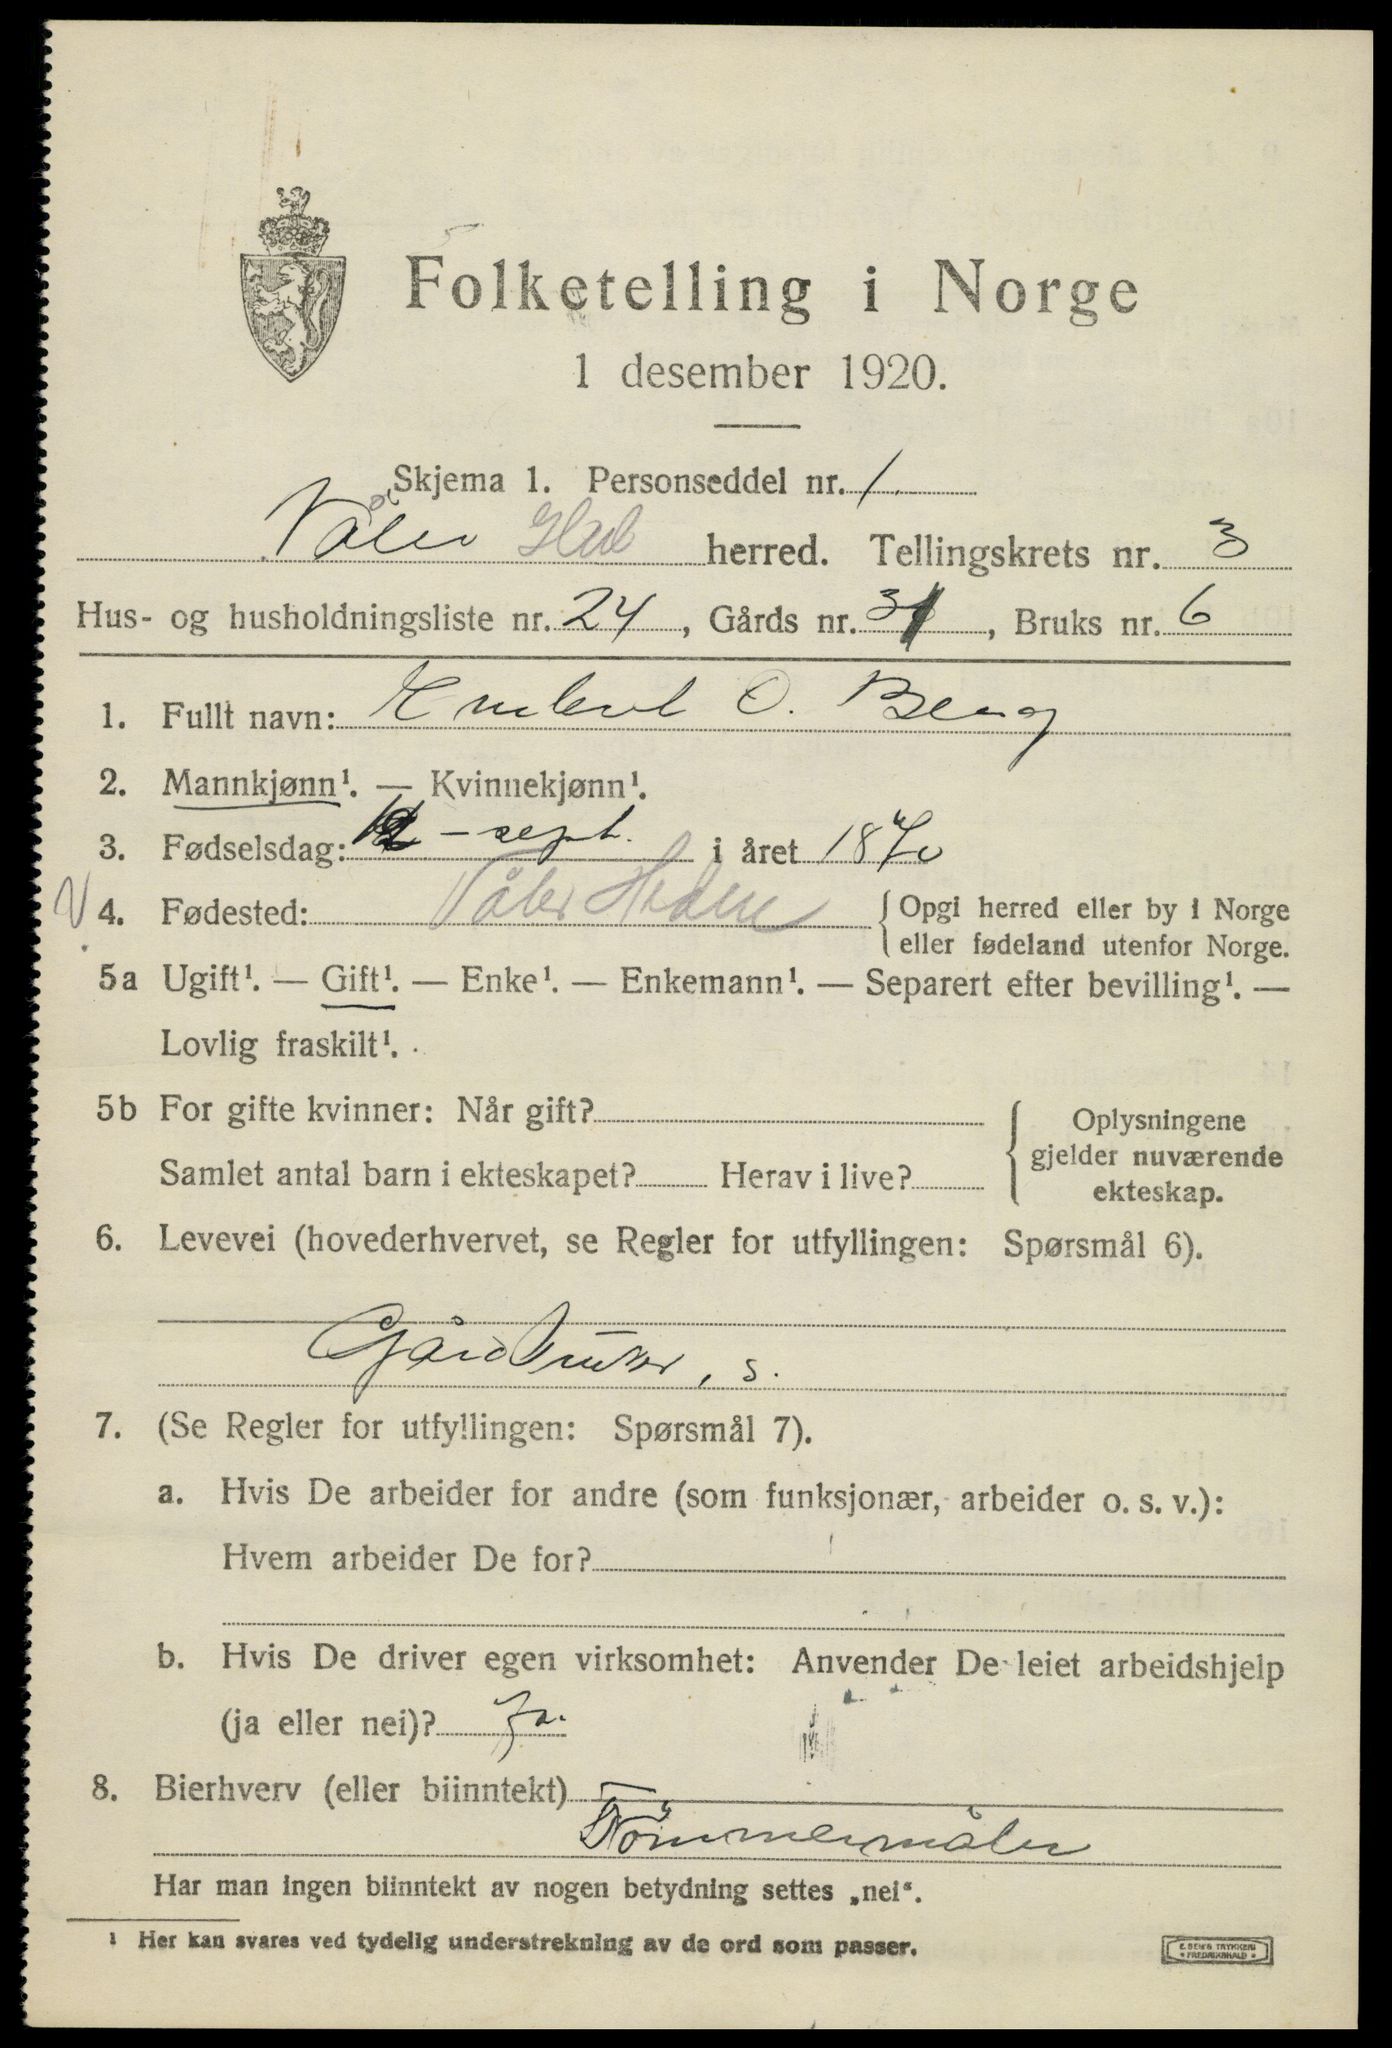 Folketelling i Norge
1 desember 1920.
Skjema 1. Personseddel nr. 1.
Våler Hed herred. Tellingskrets nr. 3
Hus- og husholdningsliste nr. 24, Gårds nr. 31, Bruks nr. 6
1. Fullt navn: O. Berg
2. Mannkjønn¹. — Kvinnekjønn¹.
3. Fødselsdag: sept. i året 1870
4. Fødested: Våler Hedm { Opgi herred eller by i Norge
eller fødeland utenfor Norge.
5a Ugift¹. — Gift¹. — Enke¹. — Enkemann¹. — Separert efter bevilling¹. —
Lovlig fraskilt¹.
5b For gifte kvinner: Når gift? { Oplysningene
gjelder nuværende
Samlet antal barn i ekteskapet? Herav i live?
ekteskap.
6. Levevei (hovederhvervet, se Regler for utfyllingen: Spørsmål 6).
Gårdbruker, s.
7. (Se Regler for utfyllingen: Spørsmål 7).
a. Hvis De arbeider for andre (som funksjonær, arbeider o. s. v.):
Hvem arbeider De for?
b. Hvis De driver egen virksomhet: Anvender De leiet arbeidshjelp
(ja eller nei)? Ja.
8. Bierhverv (eller biinntekt)
Tömmermåler
Har man ingen biinntekt av nogen betydning settes „nei“.
¹ Her kan svares ved tydelig understrekning av de ord som passer.
E. SEM'S TRYKKERI
FREDRIKSHALD